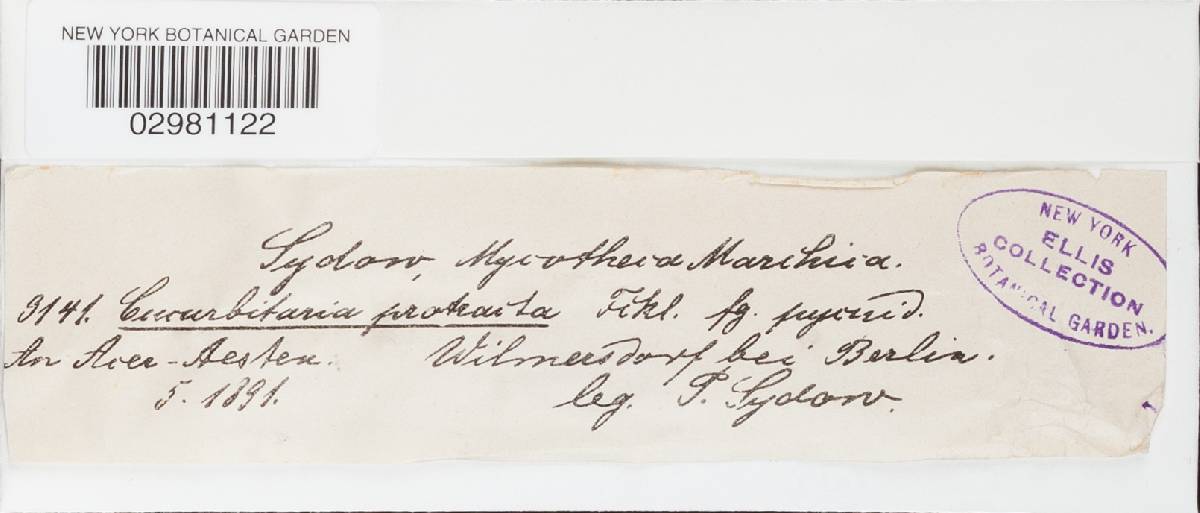 NEW YORK BOTANICAL GARDEN
02981122
Sydow, Mycotheca Marchica.
3141. Cucurbitaria protracta Fckl. fg. pycnid.
An Acer-Aesten. Wilmersdorf bei Berlin.
5. 1891. leg. P. Sydow.
NEW YORK
ELLIS
COLLECTION
BOTANICAL GARDEN.